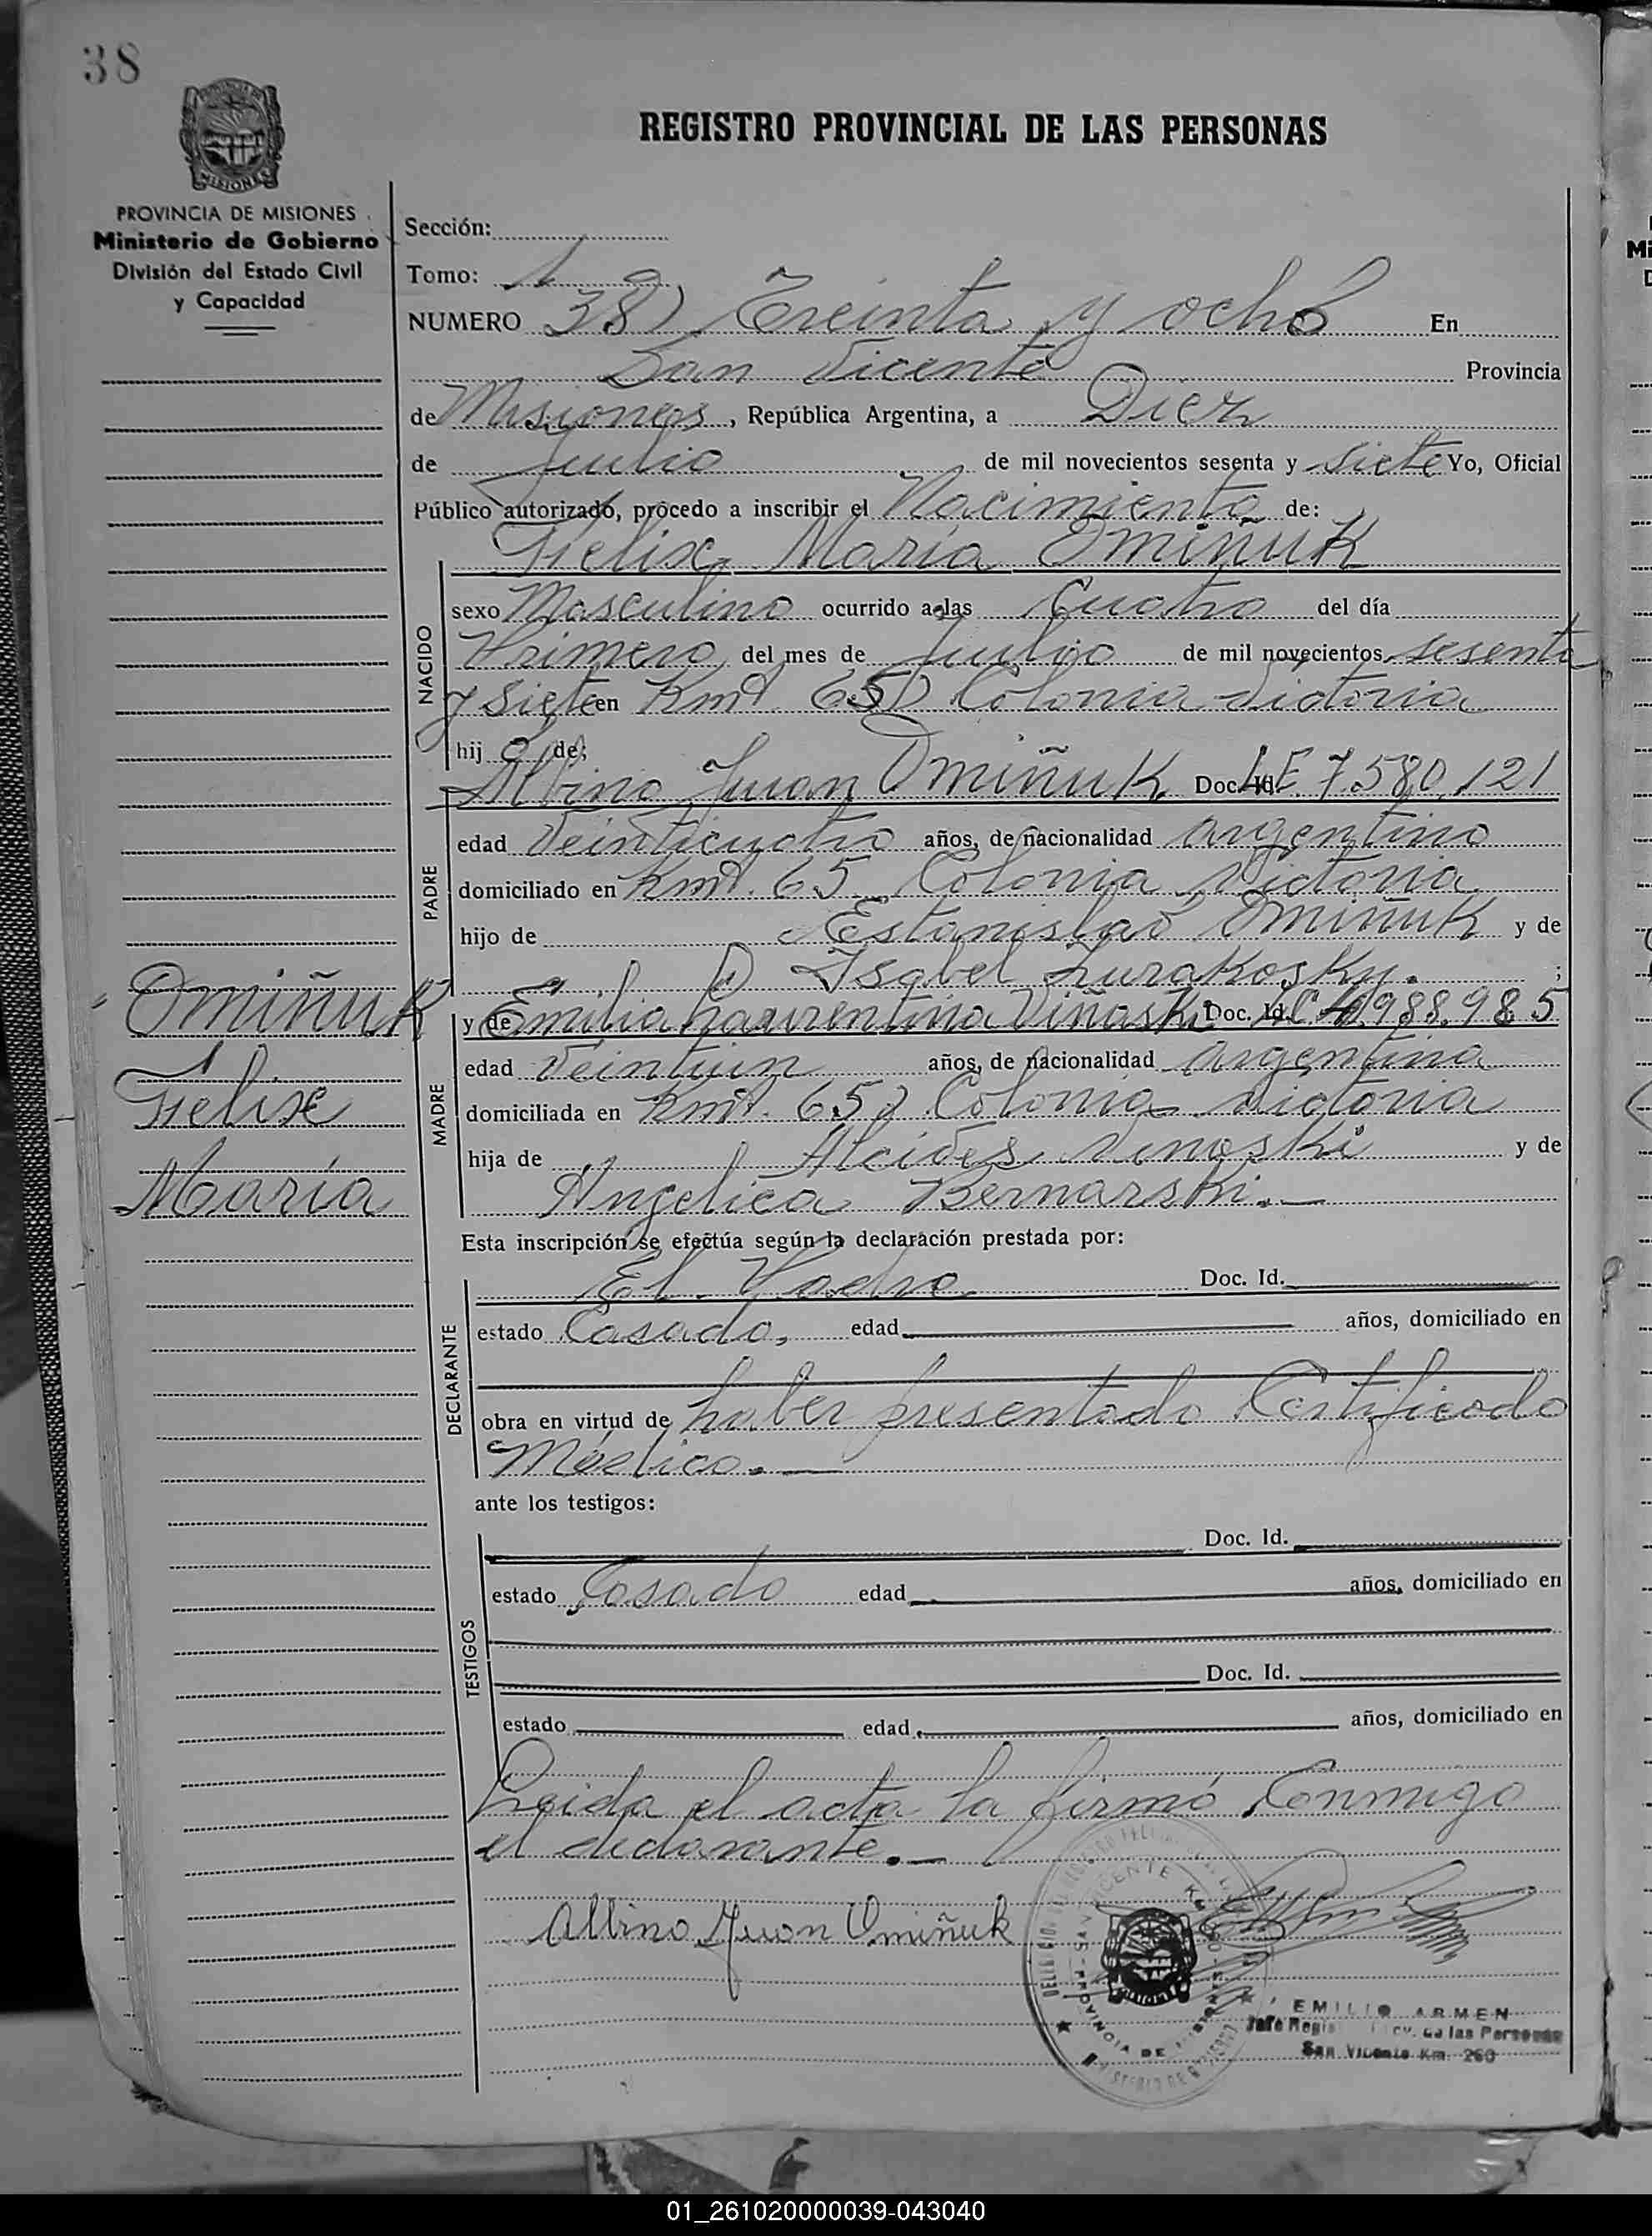 38
REGISTRO PROVINCIAL DE LAS PERSONAS
PROVINCIA DE MISIONES
Ministerio de Gobierno
División del Estado Civil
y Capacidad
Sección:
Tomo: 1
NUMERO 38) Treinta y ocho En
San Vicente Provincia
de Misiones, República Argentina, a Diez
de Julio de mil novecientos sesenta y siete Yo, Oficial
Público autorizado, procedo a inscribir el Nacimiento de:
Felix María Omiñuk
NACIDO
sexo Masculino ocurrido a las Cuatro del día
Primero del mes de Julio de mil novecientos sesenta
y siete en Kmt 65) Colonia Victoria
hijo de:
Albino Juan Omiñuk Doc. Id. LE 7.580.121
PADRE
edad Veinticuatro años, de nacionalidad argentino
domiciliado en Kmt. 65 Colonia Victoria
hijo de Estanislao Omiñuk y de
Isabel Zurakosky. ;
Omiñuk
Felix
María
MADRE
y de Emilia Laurentina Viñaski Doc. Id. LC 4.988.985
edad Veintiun años, de nacionalidad Argentina
domiciliada en Kmt. 65) Colonia Victoria
hija de Alcides Vinaski y de
Angelica Bernarski.—
Esta inscripción se efectúa según la declaración prestada por:
DECLARANTE
El Padre Doc. Id.
estado Casado, edad años, domiciliado en
obra en virtud de haber presentado Certificado
Médico.—
ante los testigos:
TESTIGOS
Doc. Id.
estado Casado edad años, domiciliado en
Doc. Id.
estado edad años, domiciliado en
Leida el acta la firmó Conmigo
el declarante.—
Albino Juan Omiñuk
SAN VICENTE
PROVINCIA DE
EMILIO ARMEN
Jefe Regis de las Personas
San Vicente Km. 260
01_261020000039-043040